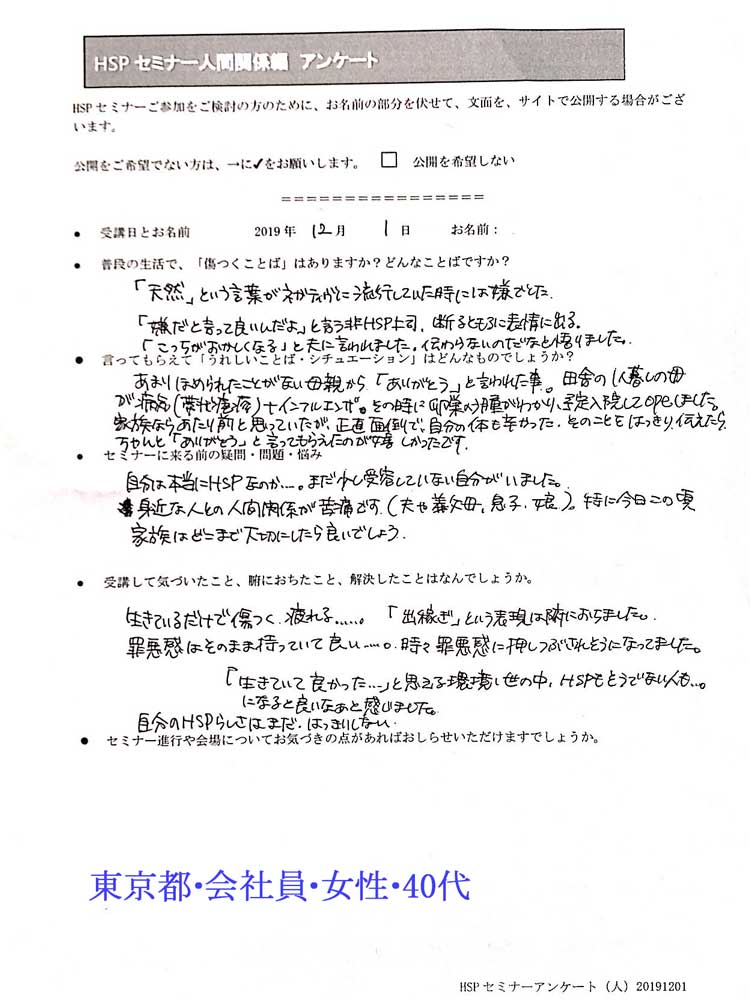 HSP セミナー人間関係編 アンケート
HSP セミナーご参加をご検討の方のために、お名前の部分を伏せて、文面を、サイトで公開する場合がござ
います。
公開をご希望でない方は、→に✓をお願いします。 □ 公開を希望しない
================
● 受講日とお名前 2019 年 12 月 1 日 お名前：
● 普段の生活で、「傷つくことば」はありますか？どんなことばですか？
「天然」という言葉がネガティヴに流行していた時には嫌でした.
「嫌だと言って良いんだよ」と言う非HSP上司, 断るともろに表情に出る。
「こっちがおかしくなる」と夫に言われました. 伝わらないのだなと悟りました。
● 言ってもらえて「うれしいことば・シチュエーション」はどんなものでしょうか？
あまりほめられたことがない母親から「ありがとう」と言われた事。田舎の1人暮しの母
が病気(帯状疱疹)+インフルエンザ。その時に卵巣の腫瘍がわかり、予定入院してopeしました。
家族ならあたり前と思っていたが、正直面倒で、自分の体も辛かった. そのことをはっきり伝えたら
ちゃんと「ありがとう」と言ってもらえたのが嬉しかったです.
● セミナーに来る前の疑問・問題・悩み
自分は本当にHSPなのか…. まだ少し受容していない自分がいました。
身近な人との人間関係が苦痛です. (夫や義父母, 息子, 娘)。特に今日この頃
家族はどこまで大切にしたら良いでしょう.
● 受講して気づいたこと、腑におちたこと、解決したことはなんでしょうか。
生きているだけで傷つく, 疲れる……。「出稼ぎ」という表現は腑におちました。
罪悪感はそのまま持っていて良い……。時々罪悪感に押しつぶされそうになってました。
「生きていて良かった…」と思える環境, 世の中, HSPもそうでない人も…。
になると良いなあと感じました。
自分のHSPらしさはまだ, はっきりしない.
● セミナー進行や会場についてお気づきの点があればおしらせいただけますでしょうか。
東京都・会社員・女性・40代
HSP セミナーアンケート（人）20191201